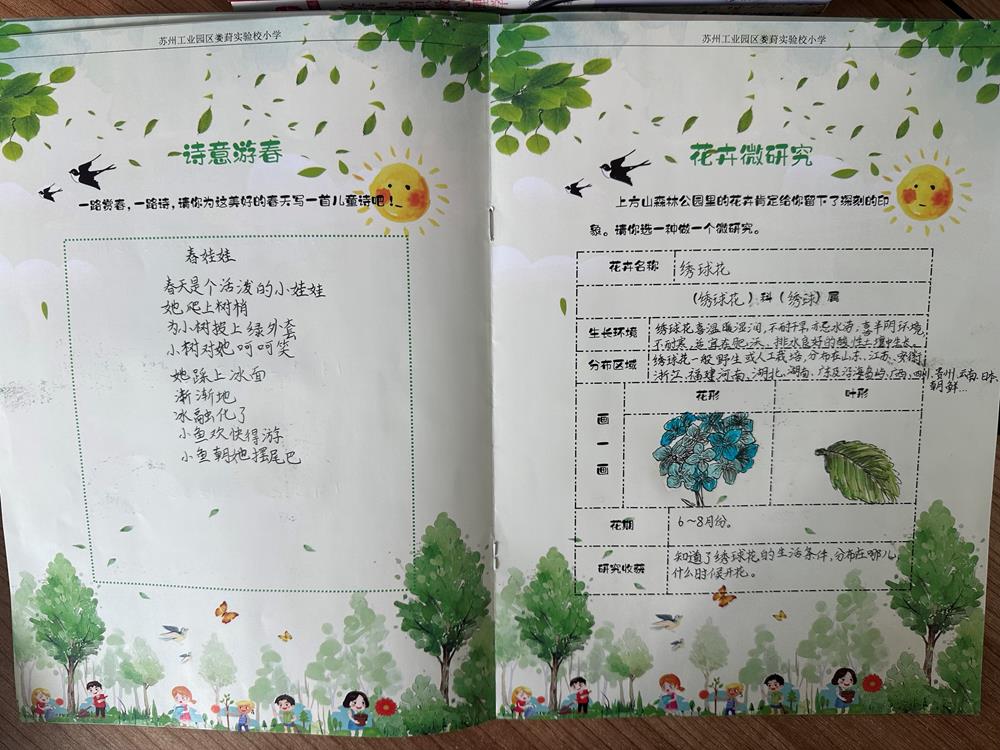 苏州工业园区娄葑实验校小学
诗意游春
一路赏春，一路诗，请你为这美好的春天写一首儿童诗吧！
春娃娃
春天是个活泼的小娃娃
她爬上树梢
为小树披上绿外套
小树对她呵呵笑
她踩上冰面
渐渐地
冰融化了
小鱼欢快得游
小鱼朝她摆尾巴
苏州工业园区娄葑实验校小学
花卉微研究
上方山森林公园里的花卉肯定给你留下了深刻的印
象。请你选一种做一个微研究。
花卉名称 绣球花
（绣球花）科（绣球）属
生长环境 绣球花喜温暖湿润，不耐干旱，亦忌水涝，喜半阴环境，
不耐寒，适宜在肥沃、排水良好的酸性土壤中生长。
分布区域 绣球花一般野生或人工栽培，分布在山东、江苏、安徽、
浙江、福建、河南、湖北、湖南、广东及沿海岛屿、广西、四川、贵州、云南、日本、
朝鲜…
画一画 花形 叶形
花期 6～8月份。
研究收获 知道了绣球花的生活条件，分布在哪儿，
什么时候开花。